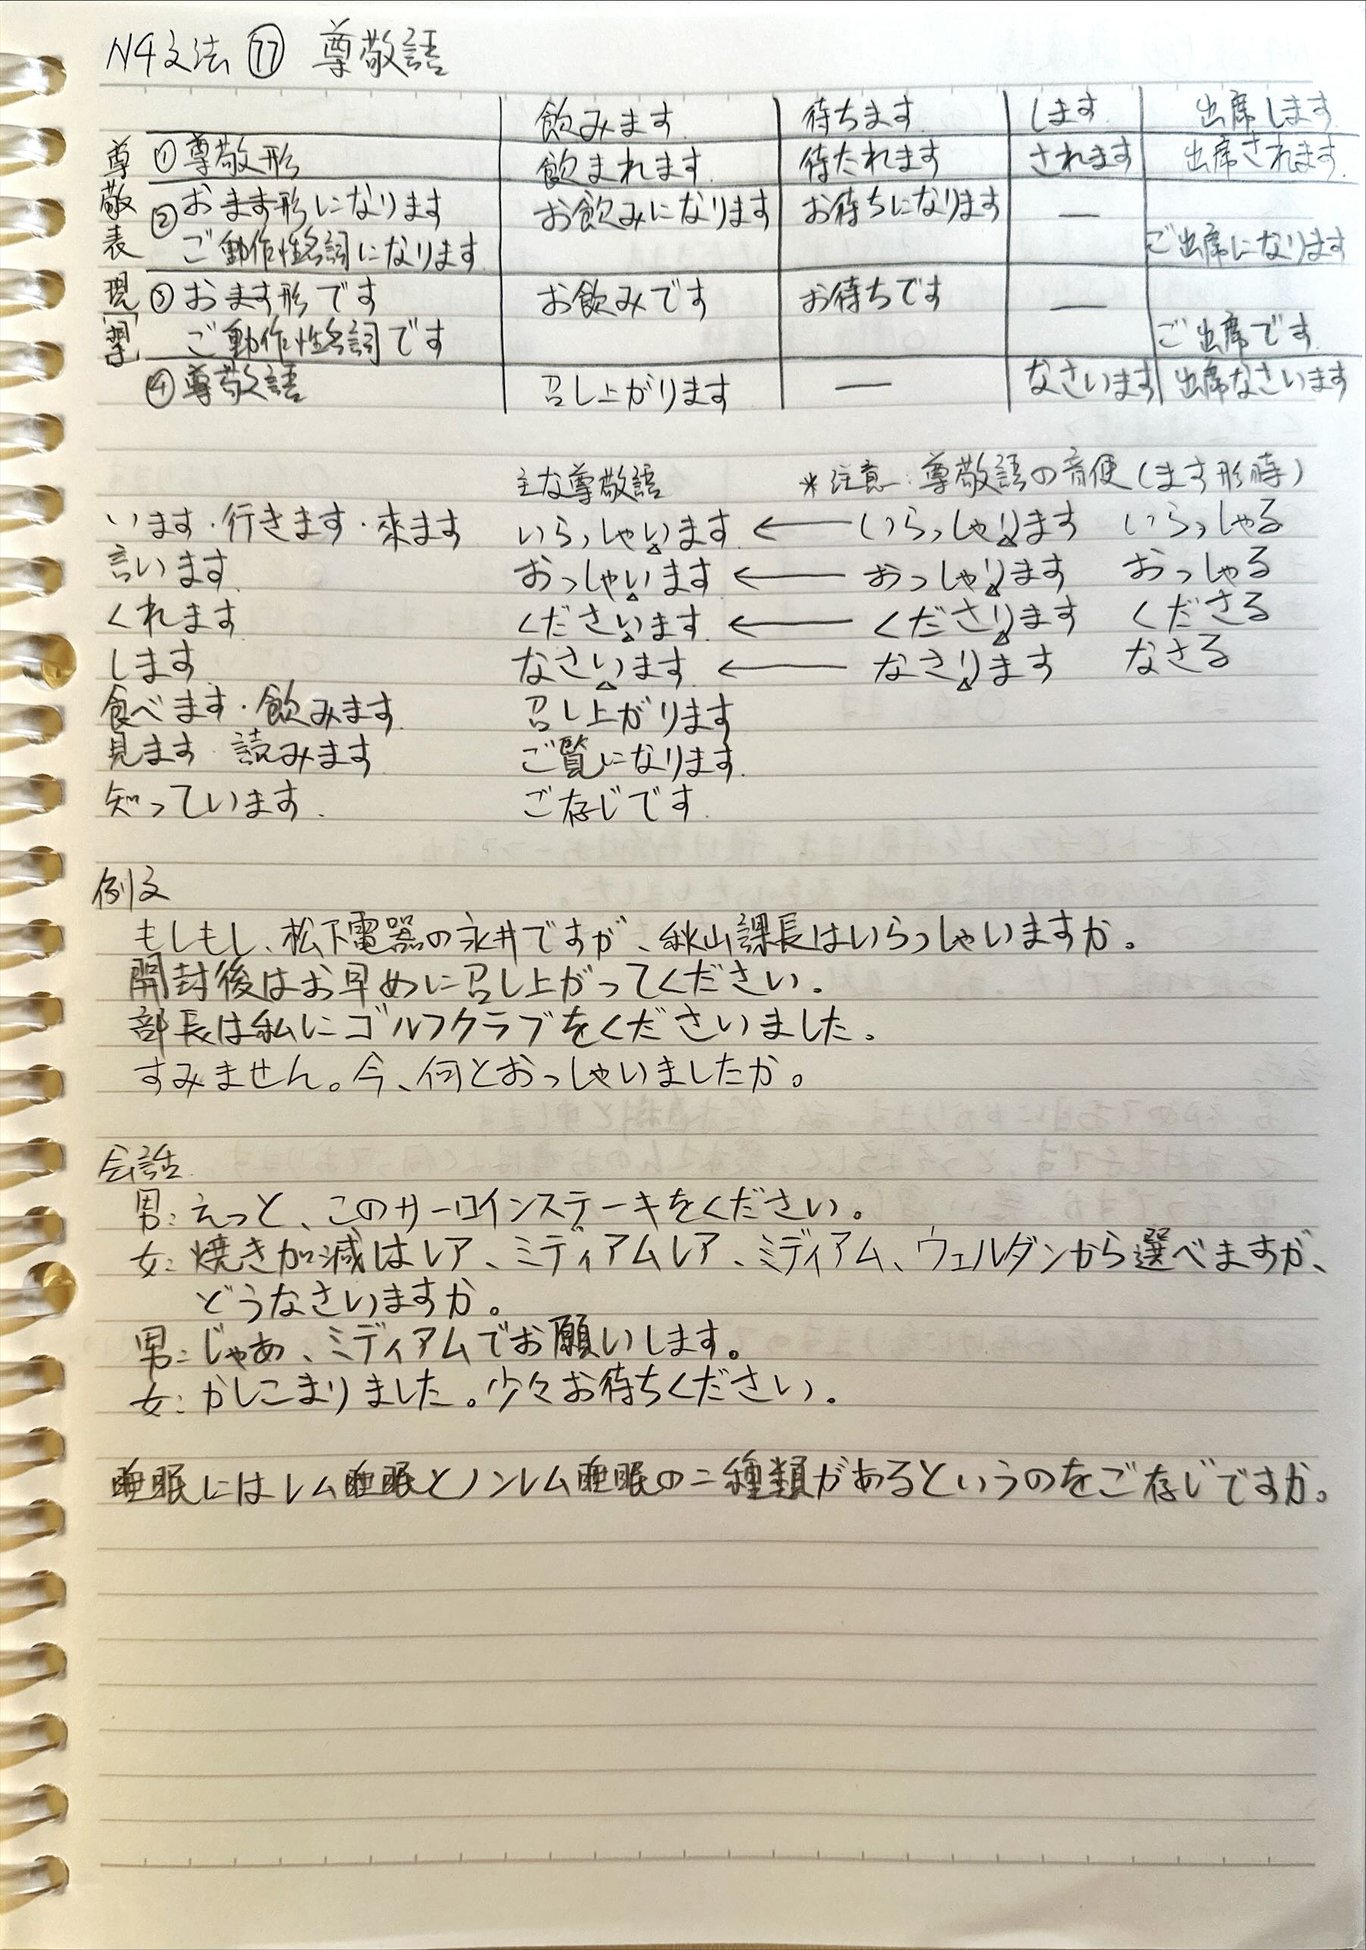 N4文法 ⑰ 尊敬語
飲みます 待ちます します 出席します
尊敬表現
①尊敬形 飲まれます 待たれます されます 出席されます
②おます形になります お飲みになります お待ちになります —
ご動作性名詞になります ご出席になります
③おます形です お飲みです お待ちです —
ご動作性名詞です ご出席です
④尊敬語 召し上がります — なさいます 出席なさいます
主な尊敬語 *注意:尊敬語の音便(ます形時)
います・行きます・来ます いらっしゃいます ← いらっしゃります いらっしゃる
言います おっしゃいます ← おっしゃります おっしゃる
くれます くださいます ← くださります くださる
します なさいます ← なさります なさる
食べます・飲みます 召し上がります
見ます 読みます ご覧になります
知っています ご存じです
例文
もしもし、松下電器の永井ですが、秋山課長はいらっしゃいますか。
開封後はお早めに召し上がってください。
部長は私にゴルフクラブをくださいました。
すみません。今、何とおっしゃいましたか。
会話
男:えっと、このサーロインステーキをください。
女:焼き加減はレア、ミディアムレア、ミディアム、ウェルダンから選べますが、
どうなさいますか。
男:じゃあ、ミディアムでお願いします。
女:かしこまりました。少々お待ちください。
睡眠にはレム睡眠とノンレム睡眠の二種類があるというのをご存じですか。